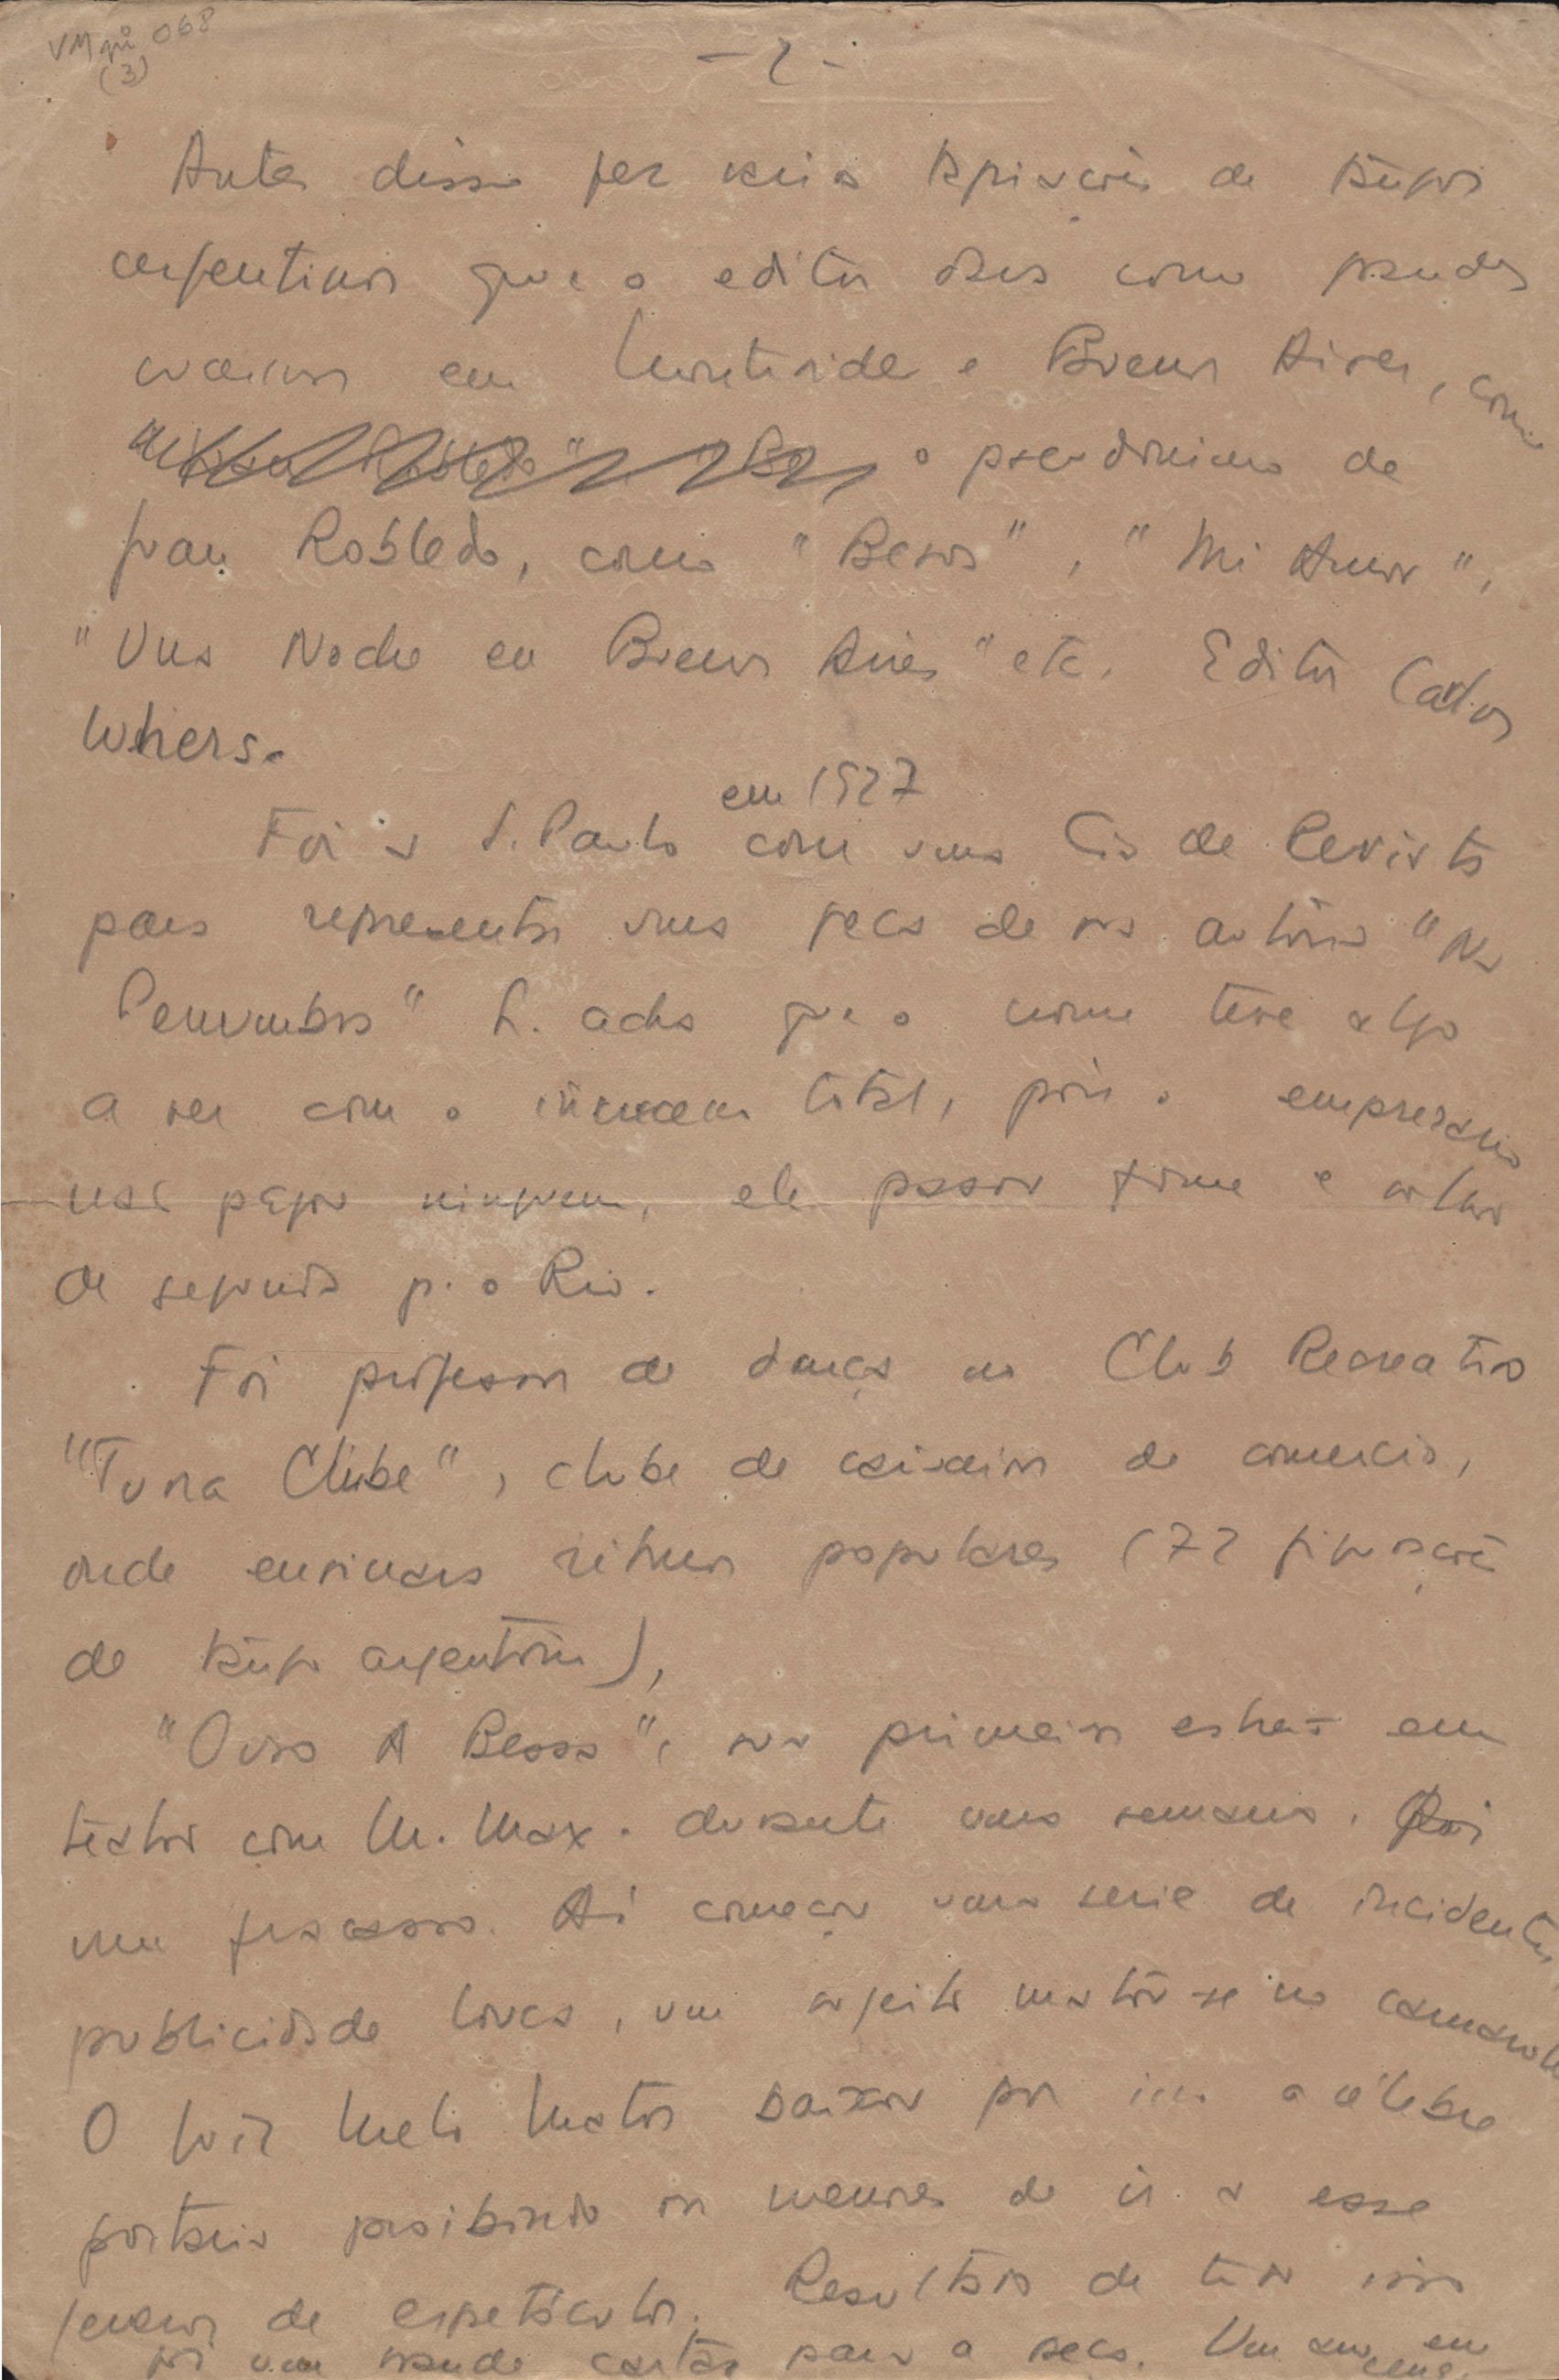 VM pi 068
(3)
- 2 -
Antes disso fez varias de tangos
argentinos que o editor dava como grandes
em Montevideo e Buenos Aires, com
o pseudonimo de
Juan Robledo, como "Besos", "Mi Amor",
"Una Noche en Buenos Aires" etc. Editor Carlos
Whers.
em 1927
Foi a S. Paulo com uma Cia de Revista
para representar uma peça de sua autoria "Na
Penumbra" L. acha que o nome teve algo
a ver com o insucesso total, pois o empresario
não pagou ninguem, ele passou fome e voltou
de segunda p. o Rio.
Foi professor de dança no Club Recreativo
"Tuna Clube", clube de caixeiros do comercio,
onde ensinava ritmos populares (72 figurações
de tango argentino),
"Ouro A Bessa", sua primeira estreia em
teatro com M. Max. durante uma semana. Foi
um fracasso. Aí começou uma serie de incidentes,
publicidade louca, um sujeito matou-se no camarote
O juiz Melo Matos baixou por isso a célebre
portaria proibindo os menores de ir a esse
genero de espetáculos. Resultado de tudo isso
foi um grande cartaz para a peça. Um em